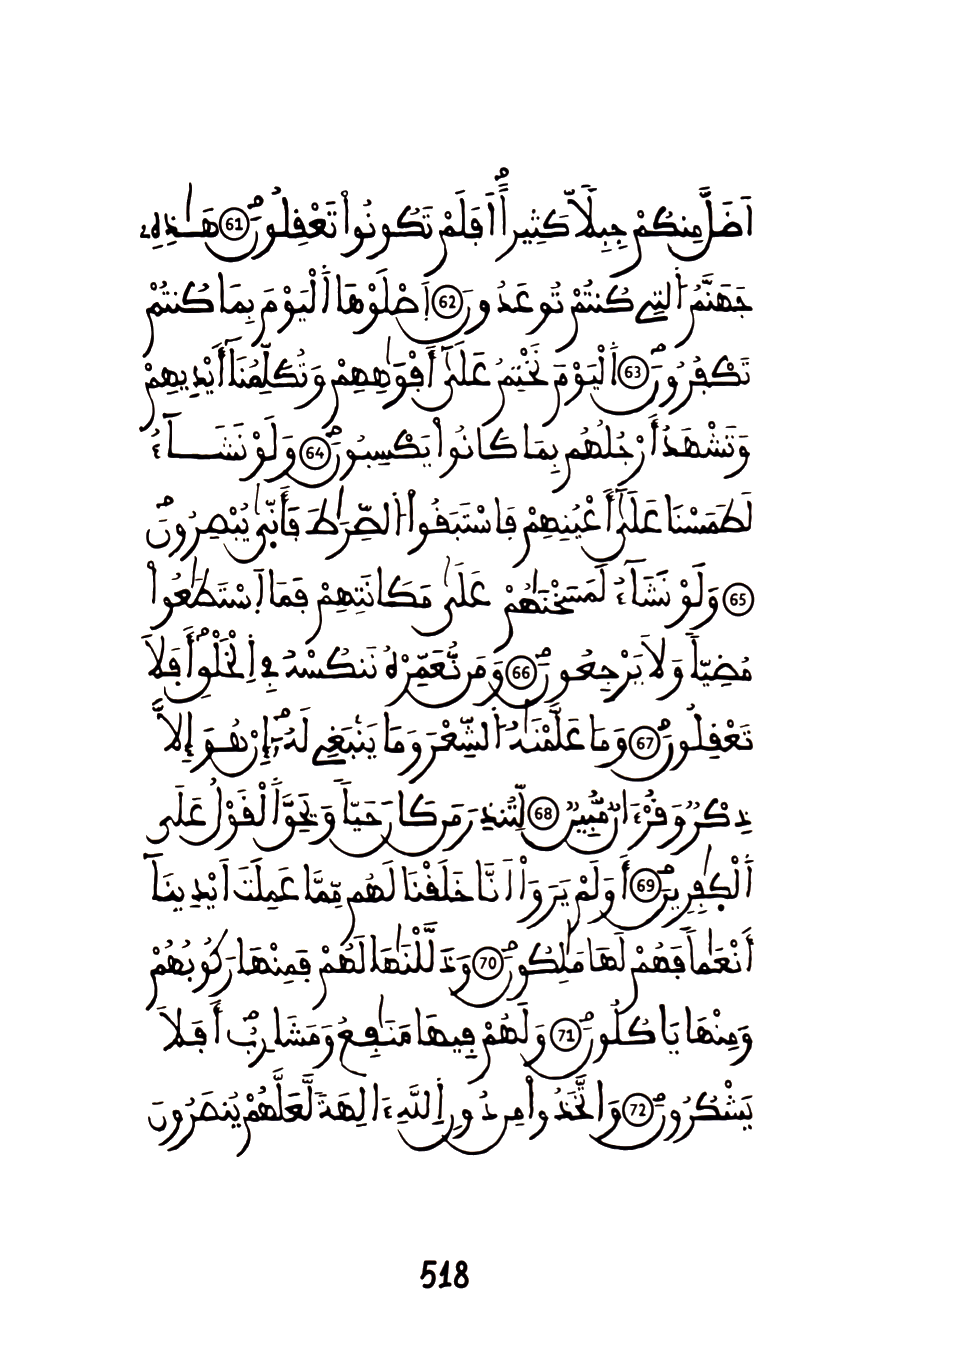 أَضَلَّ مِنكُمْ جِبِلّاٗ كَثِيراً اَفَلَمْ تَكُونُواْ تَعْقِلُونَ 61 هَٰذِهِۦ
جَهَنَّمُ اُلتِے كُنتُمْ تُوعَدُونَ 62 اَصْلَوْهَا اَلْيَوْمَ بِمَا كُنتُمْ
تَكْفُرُونَ 63 اَلْيَوْمَ نَخْتِمُ عَلَىٰٓ أَفْوَٰهِهِمْ وَتُكَلِّمُنَآ أَيْدِيهِمْ
وَتَشْهَدُ أَرْجُلُهُم بِمَا كَانُواْ يَكْسِبُونَ 64 وَلَوْ نَشَآءُ
لَطَمَسْنَا عَلَىٰٓ أَعْيُنِهِمْ فَاسْتَبَقُواْ اُلصِّرَٰطَ فَأَنّ۪ىٰ يُبْصِرُونَ
65 وَلَوْ نَشَآءُ لَمَسَخْنَٰهُمْ عَلَىٰ مَكَانَتِهِمْ فَمَا اَسْتَطَٰعُواْ
مُضِيّاٗ وَلَا يَرْجِعُونَ 66 وَمَن نُّعَمِّرْهُ نَنكُسْهُ فِے اِلْخَلْقِ أَفَلَا
تَعْقِلُونَ 67 وَمَا عَلَّمْنَٰهُ اُلشِّعْرَ وَمَا يَنۢبَغِے لَهُۥٓ إِنْ هُوَ إِلَّا
ذِكْرٞ وَقُرْءَانٞ مُّبِينٞ 68 لِّتُنذِرَ مَن كَانَ حَيّاٗ وَيَحِقَّ اَلْقَوْلُ عَلَى
اَلْكَٰفِرِينَ 69 أَوَلَمْ يَرَوَاْ اَنَّا خَلَقْنَا لَهُم مِّمَّا عَمِلَتَ اَيْدِينَآ
أَنْعَٰماٗ فَهُمْ لَهَا مَٰلِكُونَ 70 وَذَلَّلْنَٰهَا لَهُمْ فَمِنْهَا رَكُوبُهُمْ
وَمِنْهَا يَاكُلُونَ 71 وَلَهُمْ فِيهَا مَنَٰفِعُ وَمَشَارِبُ أَفَلَا
يَشْكُرُونَ 72 وَاتَّخَذُواْ مِن دُونِ اِللَّهِ ءَالِهَةٗ لَّعَلَّهُمْ يُنصَرُونَ
518